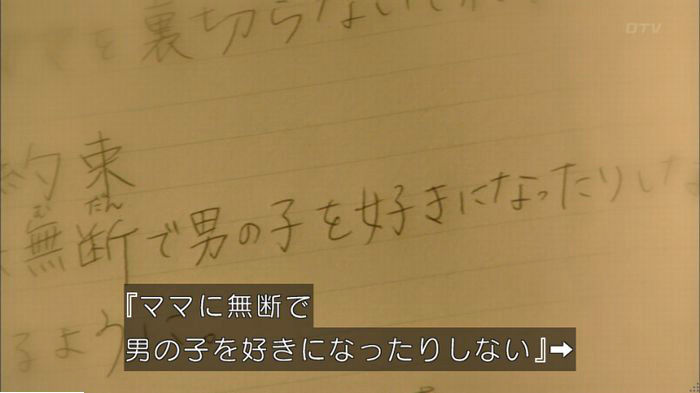 DTV
を裏切らない
約束
むだん
無断で男の子を好きになったりしな
るように。
『ママに無断で
男の子を好きになったりしない』➡